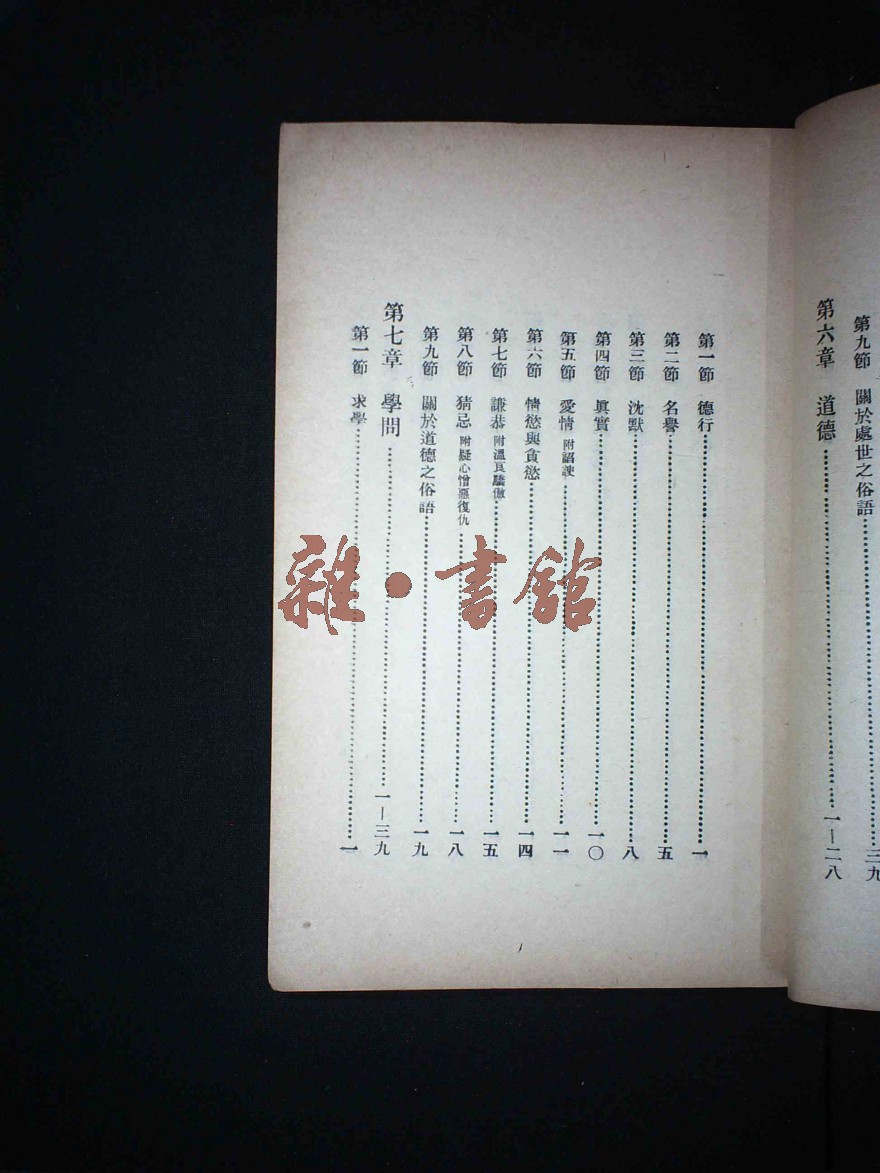 第九節　關於處世之俗語……三九
第六章　道德……一—二八
第一節　德行……一
第二節　名譽……五
第三節　沈默……八
第四節　眞實……一〇
第五節　愛情　附諂諛……一一
第六節　情慾與貪慾……一四
第七節　謙恭　附溫良驕傲……一五
第八節　猜忌　附疑心憎惡復仇……一八
第九節　關於道德之俗語……一九
第七章　學問……一—三九
第一節　求學……一
雜·書館